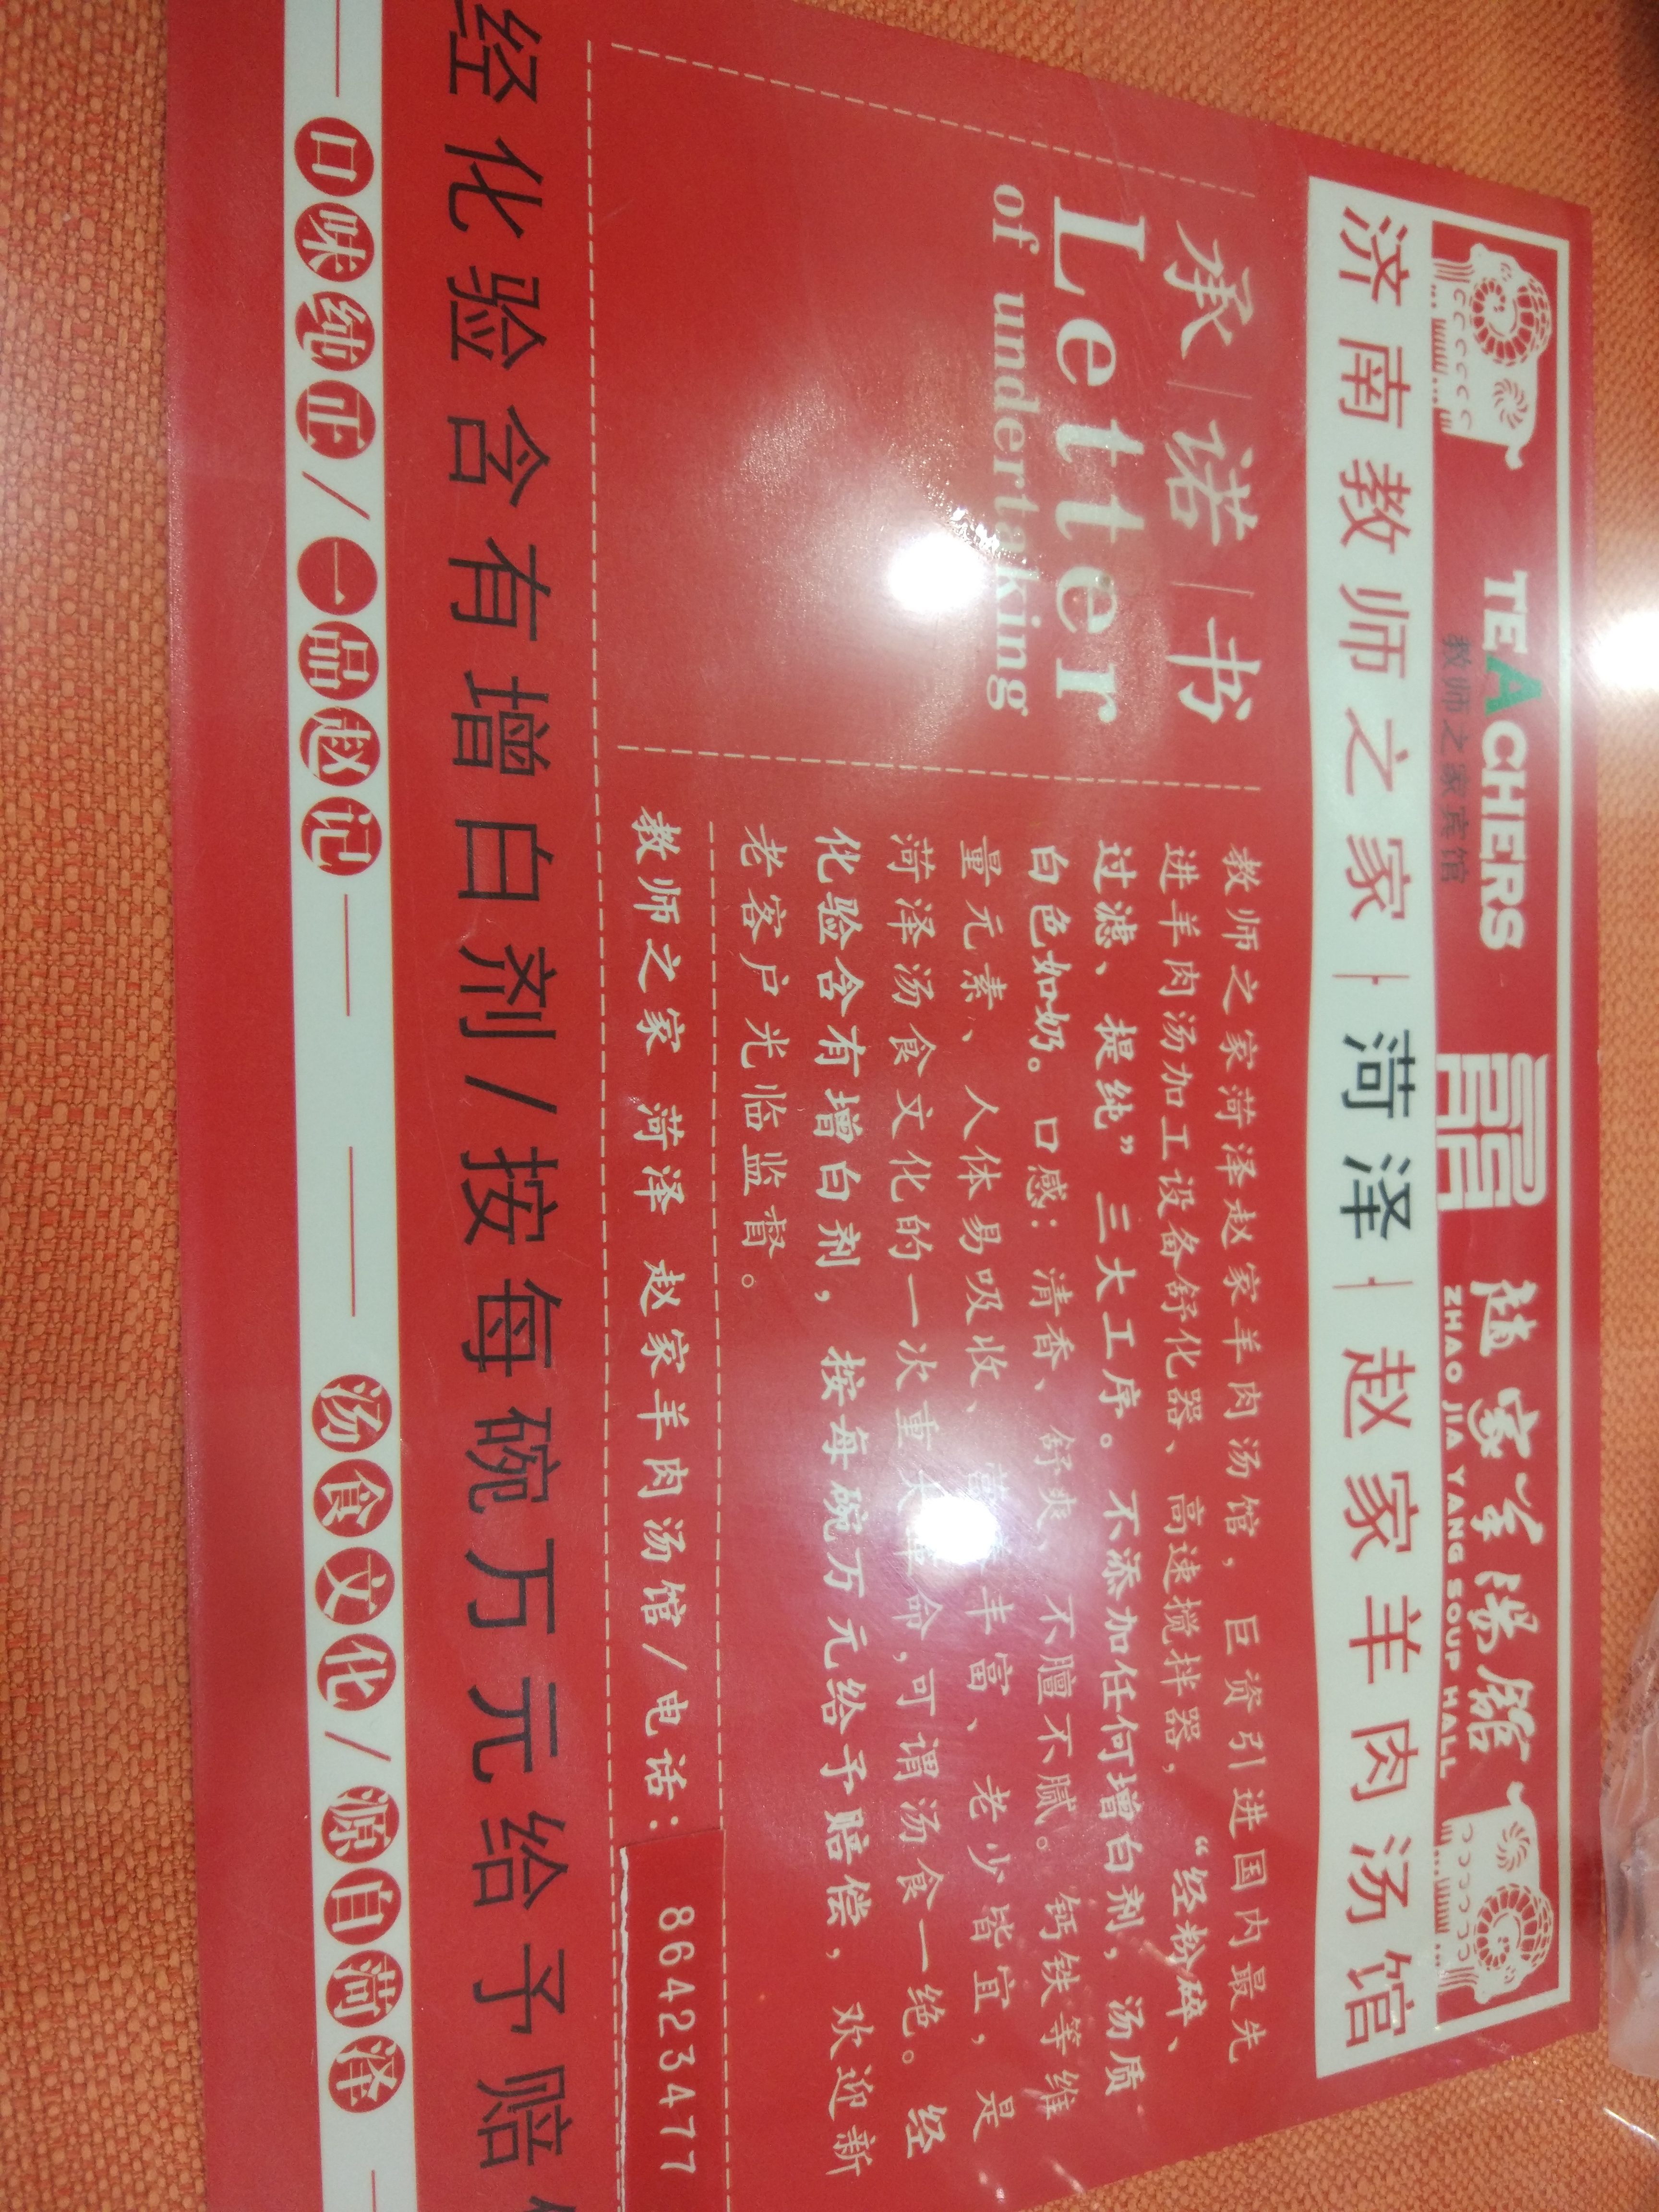 TEACHERS
教师之家宾馆
赵家羊汤馆
ZHAO JIA YANG SOUP HALL
济南教师之家|菏泽|赵家羊肉汤馆
承|诺|书
Letter
of undertaking
教师之家菏泽赵家羊肉汤馆，巨资引进国内最先
进羊肉汤加工设备舒化器、高速搅拌器，“经粉碎、
过滤、提纯”三大工序。不添加任何增白剂，汤质
白色如奶。口感：清香、舒爽、不膻不腻。钙铁等维
量元素、人体易吸收、营养丰富、老少皆宜，是
菏泽汤食文化的一次重大革命，可谓汤食一绝。经
化验含有增白剂，按每碗万元给予赔偿，欢迎新
老客户光临监督。
教师之家 菏泽 赵家羊肉汤馆/电话：86423477
经化验含有增白剂/按每碗万元给予赔
口味纯正/一品赵记
汤食文化/源自菏泽